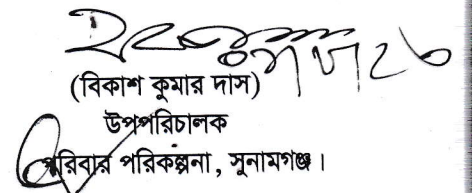 (বিকাশ কুমার দাস)
উপপরিচালক
পরিবার পরিকল্পনা, সুনামগঞ্জ।